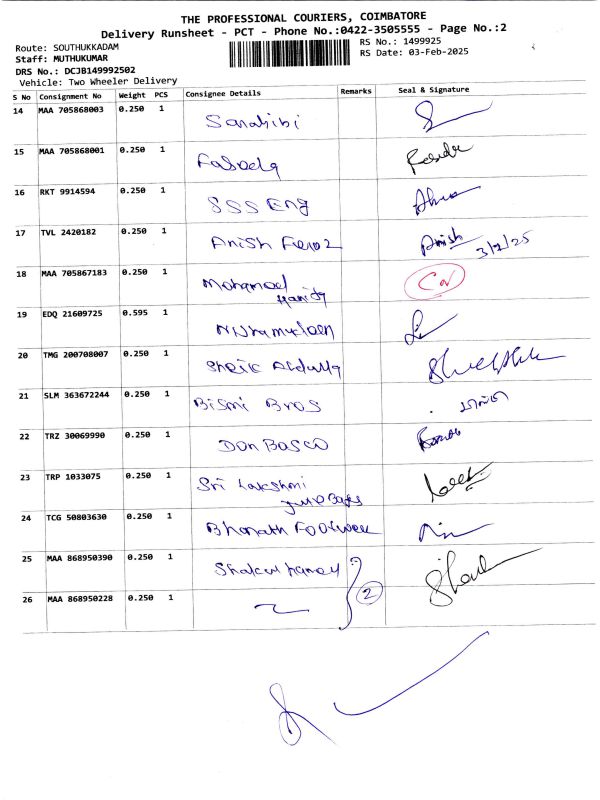 THE PROFESSIONAL COURIERS, COIMBATORE
Delivery Runsheet - PCT - Phone No.:0422-3505555 - Page No.:2
Route: SOUTHUKKADAM
RS No.: 1499925
Staff: MUTHUKUMAR
RS Date: 03-Feb-2025
DRS No.: DCJB149992502
Vehicle: Two Wheeler Delivery
S No Consignment No Weight PCS Consignee Details Remarks Seal & Signature
14 MAA 705868003 0.250 1
15 MAA 705868001 0.250 1
16 RKT 9914594 0.250 1 SSS Eng
17 TVL 2420182 0.250 1 Anish Feroz Anish 3/2/25
18 MAA 705867183 0.250 1 Mohamad
19 EDQ 21609725 0.595 1
20 TMG 200708007 0.250 1 Sheik Abdulla
21 SLM 363672244 0.250 1 Bismi Bros
22 TRZ 30069990 0.250 1 Don Bosco
23 TRP 1033075 0.250 1 Sri Lakshmi
24 TCG 50803630 0.250 1 Bharath Footwear
25 MAA 868950390 0.250 1
26 MAA 868950228 0.250 1 2